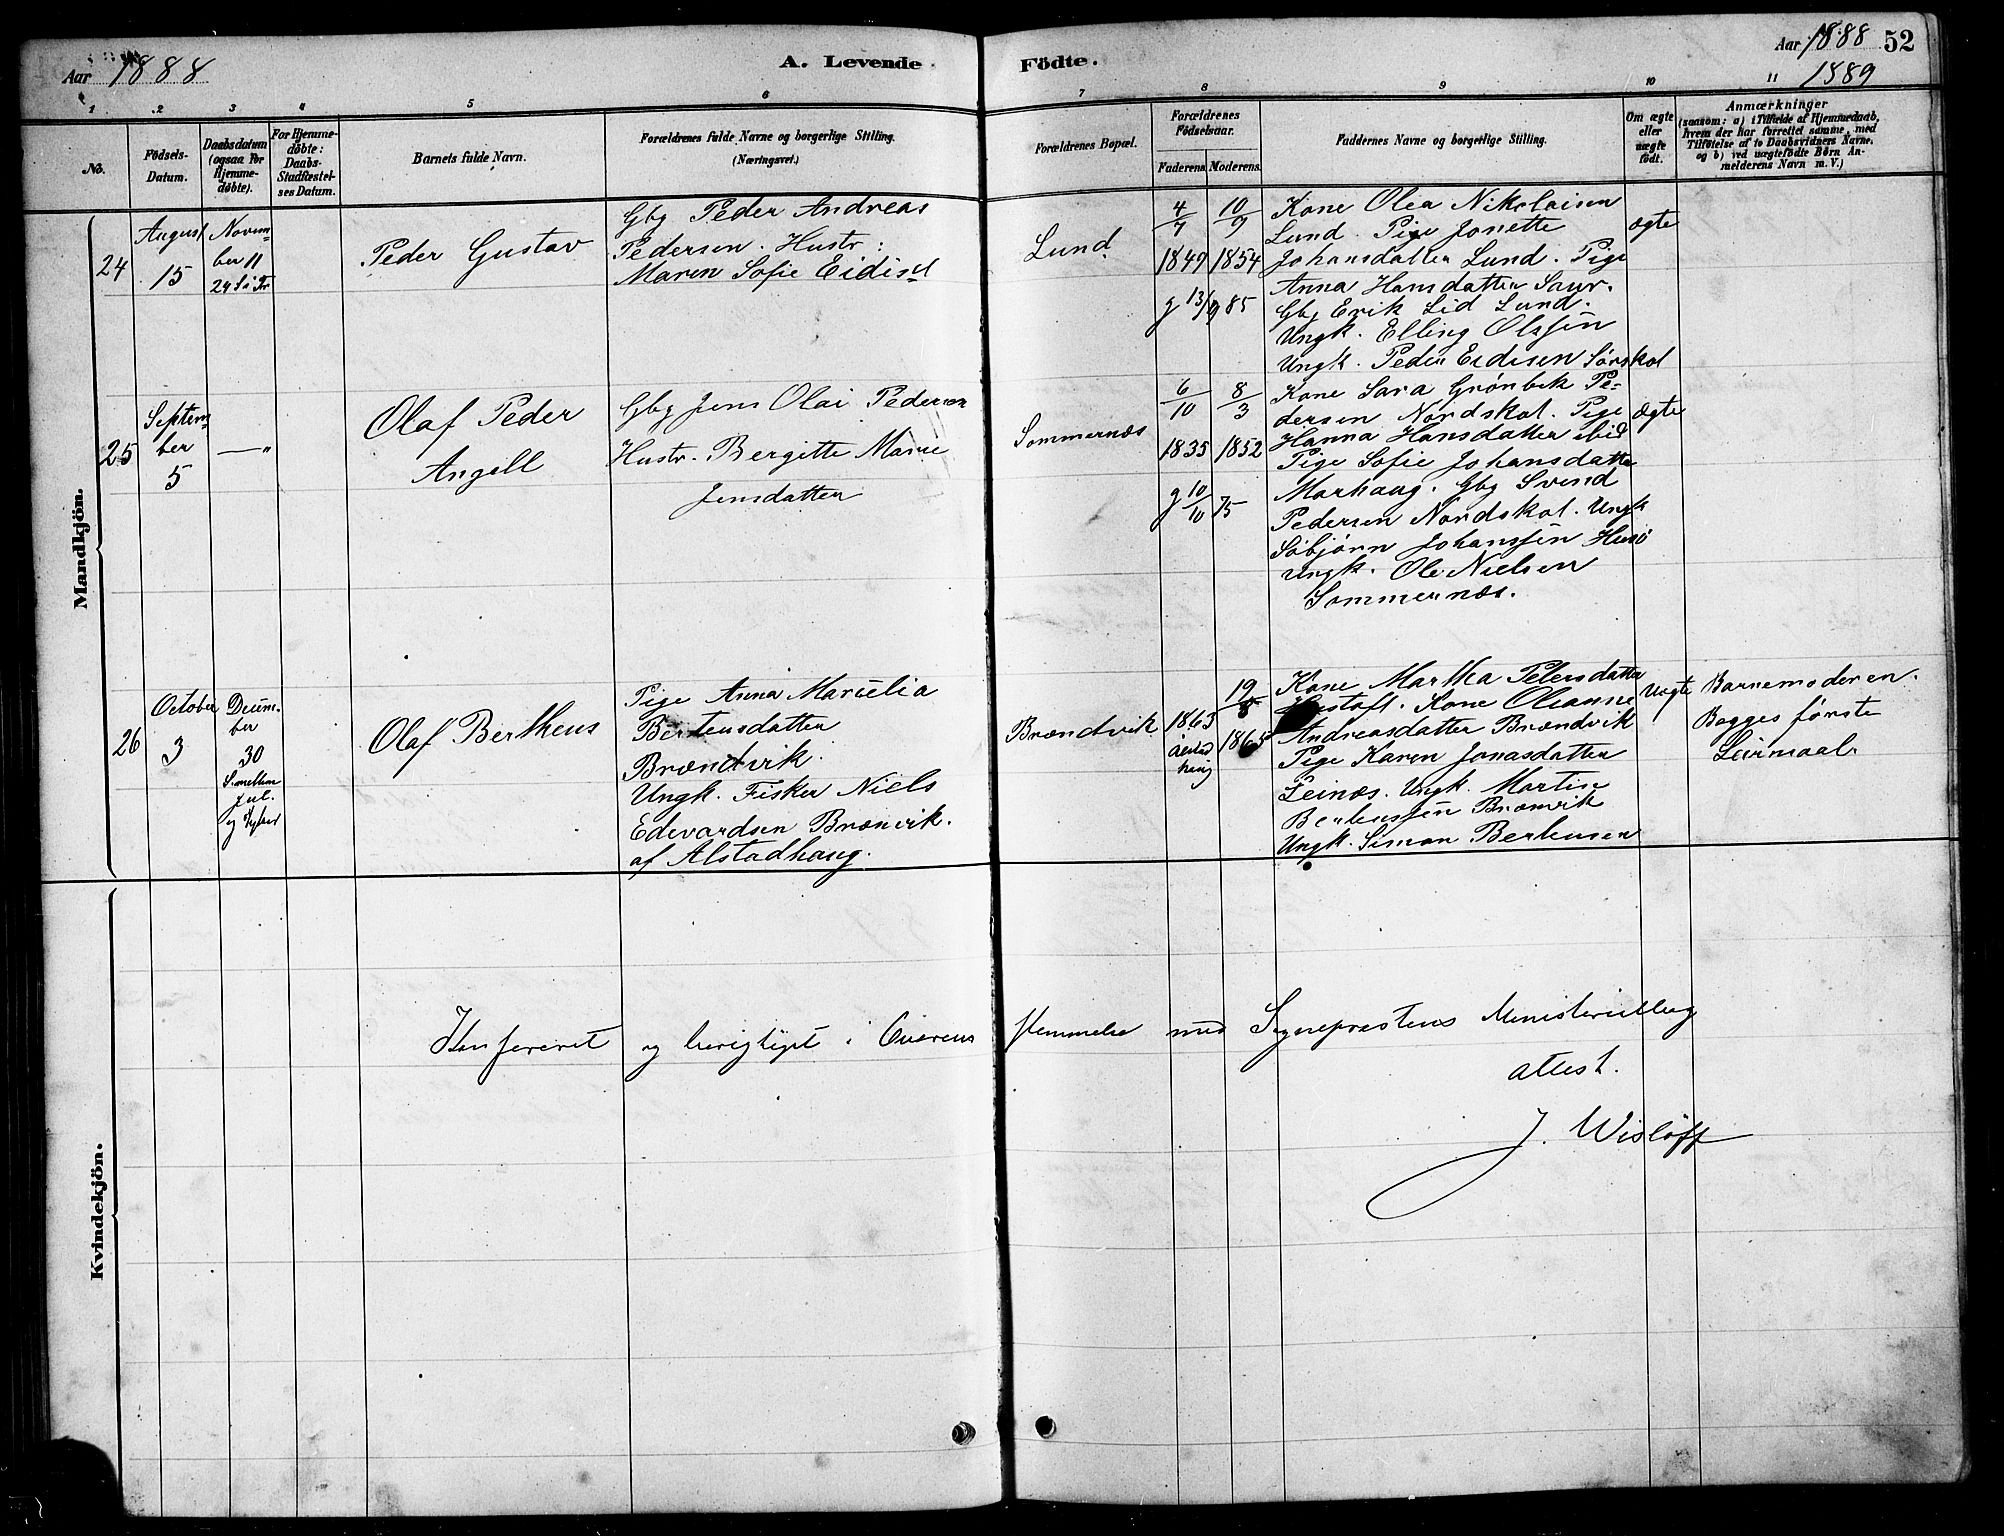 Aar 1888
A. Levende Födte.
Aar 1888 52
1889
1 2 3 4 5 6 7 8 9 10 11
No.
Födsels-Datum.
Daabsdatum (ogsaa for Hjemme-døbte).
For Hjemme-døbte: Daabs-Stadfæstel-ses Datum.
Barnets fulde Navn.
Forældrenes fulde Navne og borgerlige Stilling. (Næringsvei.)
Forældrenes Bopæl.
Forældrenes Födselsaar.
Faderens. Moderens.
Faddernes Navne og borgerlige Stilling.
Om ægte eller uægte födt.
Anmærkninger
(saasom: a) i Tilfælde af Hjemmedaab, hvem der har forrettet samme, med Tilföielse af to Daabsvidners Navne, og b) ved uægtefödte Börn An-melderens Navn m. V.)
Mandkjön.
24
August
15
Novem-
ber 11
24 S. i Tr
Peder Gustav
Gbg Peder Andreas
Pedersen. Hustr:
Maren Sofie
Lund.
4/7 10/9
1849 1854
g 13/9 85
Kone Olea Nikolaisen
Lund. Pige Jonette
Johansdatter Lund. Pige
Anna Hansdatter
Gbg Erik Lid Lund.
Ungk. Elling Olsen
Ungk. Peder Eidisen Sørskot
ægte
25
Septem-
ber
5
— "
Olaf Peder
Angell
Gbg Jens Olai Pedersen
Hustr. Bergitte Marie
Jensdatter
Sommernæs
6/10 8/3
1835 1852
g 10/10 75
Kone Sara Grønbek Pe-
dersen Nordskot. Pige
Hanna Hansdatter ibid
Pige Sofie Johansdatter
Marhaug. Gbg Svend
Pedersen Nordskot. Ungk
Søbjørn Johanssen Husø
Ungk. Ole Nielsen
Sommernæs.
ægte
26
October
3
Decem-
ber
30
S. mellem
Jul.
og Nytaar
Olaf Bertheus
Pige Anna
Bertensdatter
Brændvik.
Ungk. Fisker Niels
Edvardsen Brænvik.
af Alstadhaug.
Brændvik
1863
Alstad
haug
19/8
1865
Kone Martha Petersdatter
Kone Oleanne
Andreasdatter Brændvik
Pige Karen Jonasdatter
Leinæs. Ungk. Martin
Bertheussen Brænvik
Ungk. Simon Bertheusen
Uægte
Barnemoderen.
Begges første
Leiermaal.
Kvindekjön.
Konfereret og berigtiget i Overens stemmelse med Sogneprestens Ministerialbog
attest.
J. Wisløff